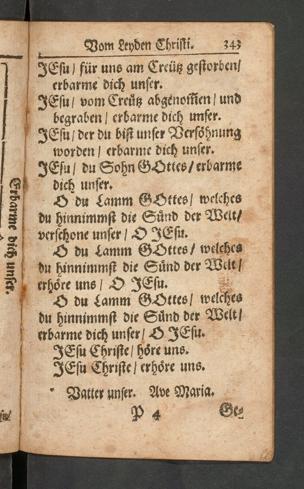 Vom Leyden Christi. 343
JEsu / für uns am Creütz gestorben /
erbarme dich unser.
JEsu / vom Creütz abgenom̃en / und
begraben / erbarme dich unser.
JEsu / der du bist unser Versöhnung
worden / erbarme dich unser.
JEsu / du Sohn GOttes / erbarme
dich unser.
O du Lamm GOttes / welches
du hinnimmst die Sünd der Welt /
verschone unser / O JEsu.
O du Lamm GOttes / welches
du hinnimmst die Sünd der Welt /
erhöre uns / O JEsu.
O du Lamm GOttes / welches
du hinnimmst die Sünd der Welt /
erbarme dich unser / O JEsu.
JEsu Christe / höre uns.
JEsu Christe / erhöre uns.
Vatter unser. Ave Maria.
P 4 Ge-
Erbarme dich unser.